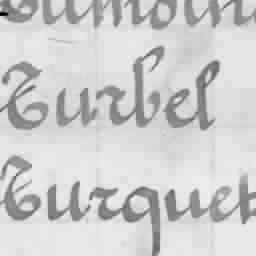 Turbel
Turquet